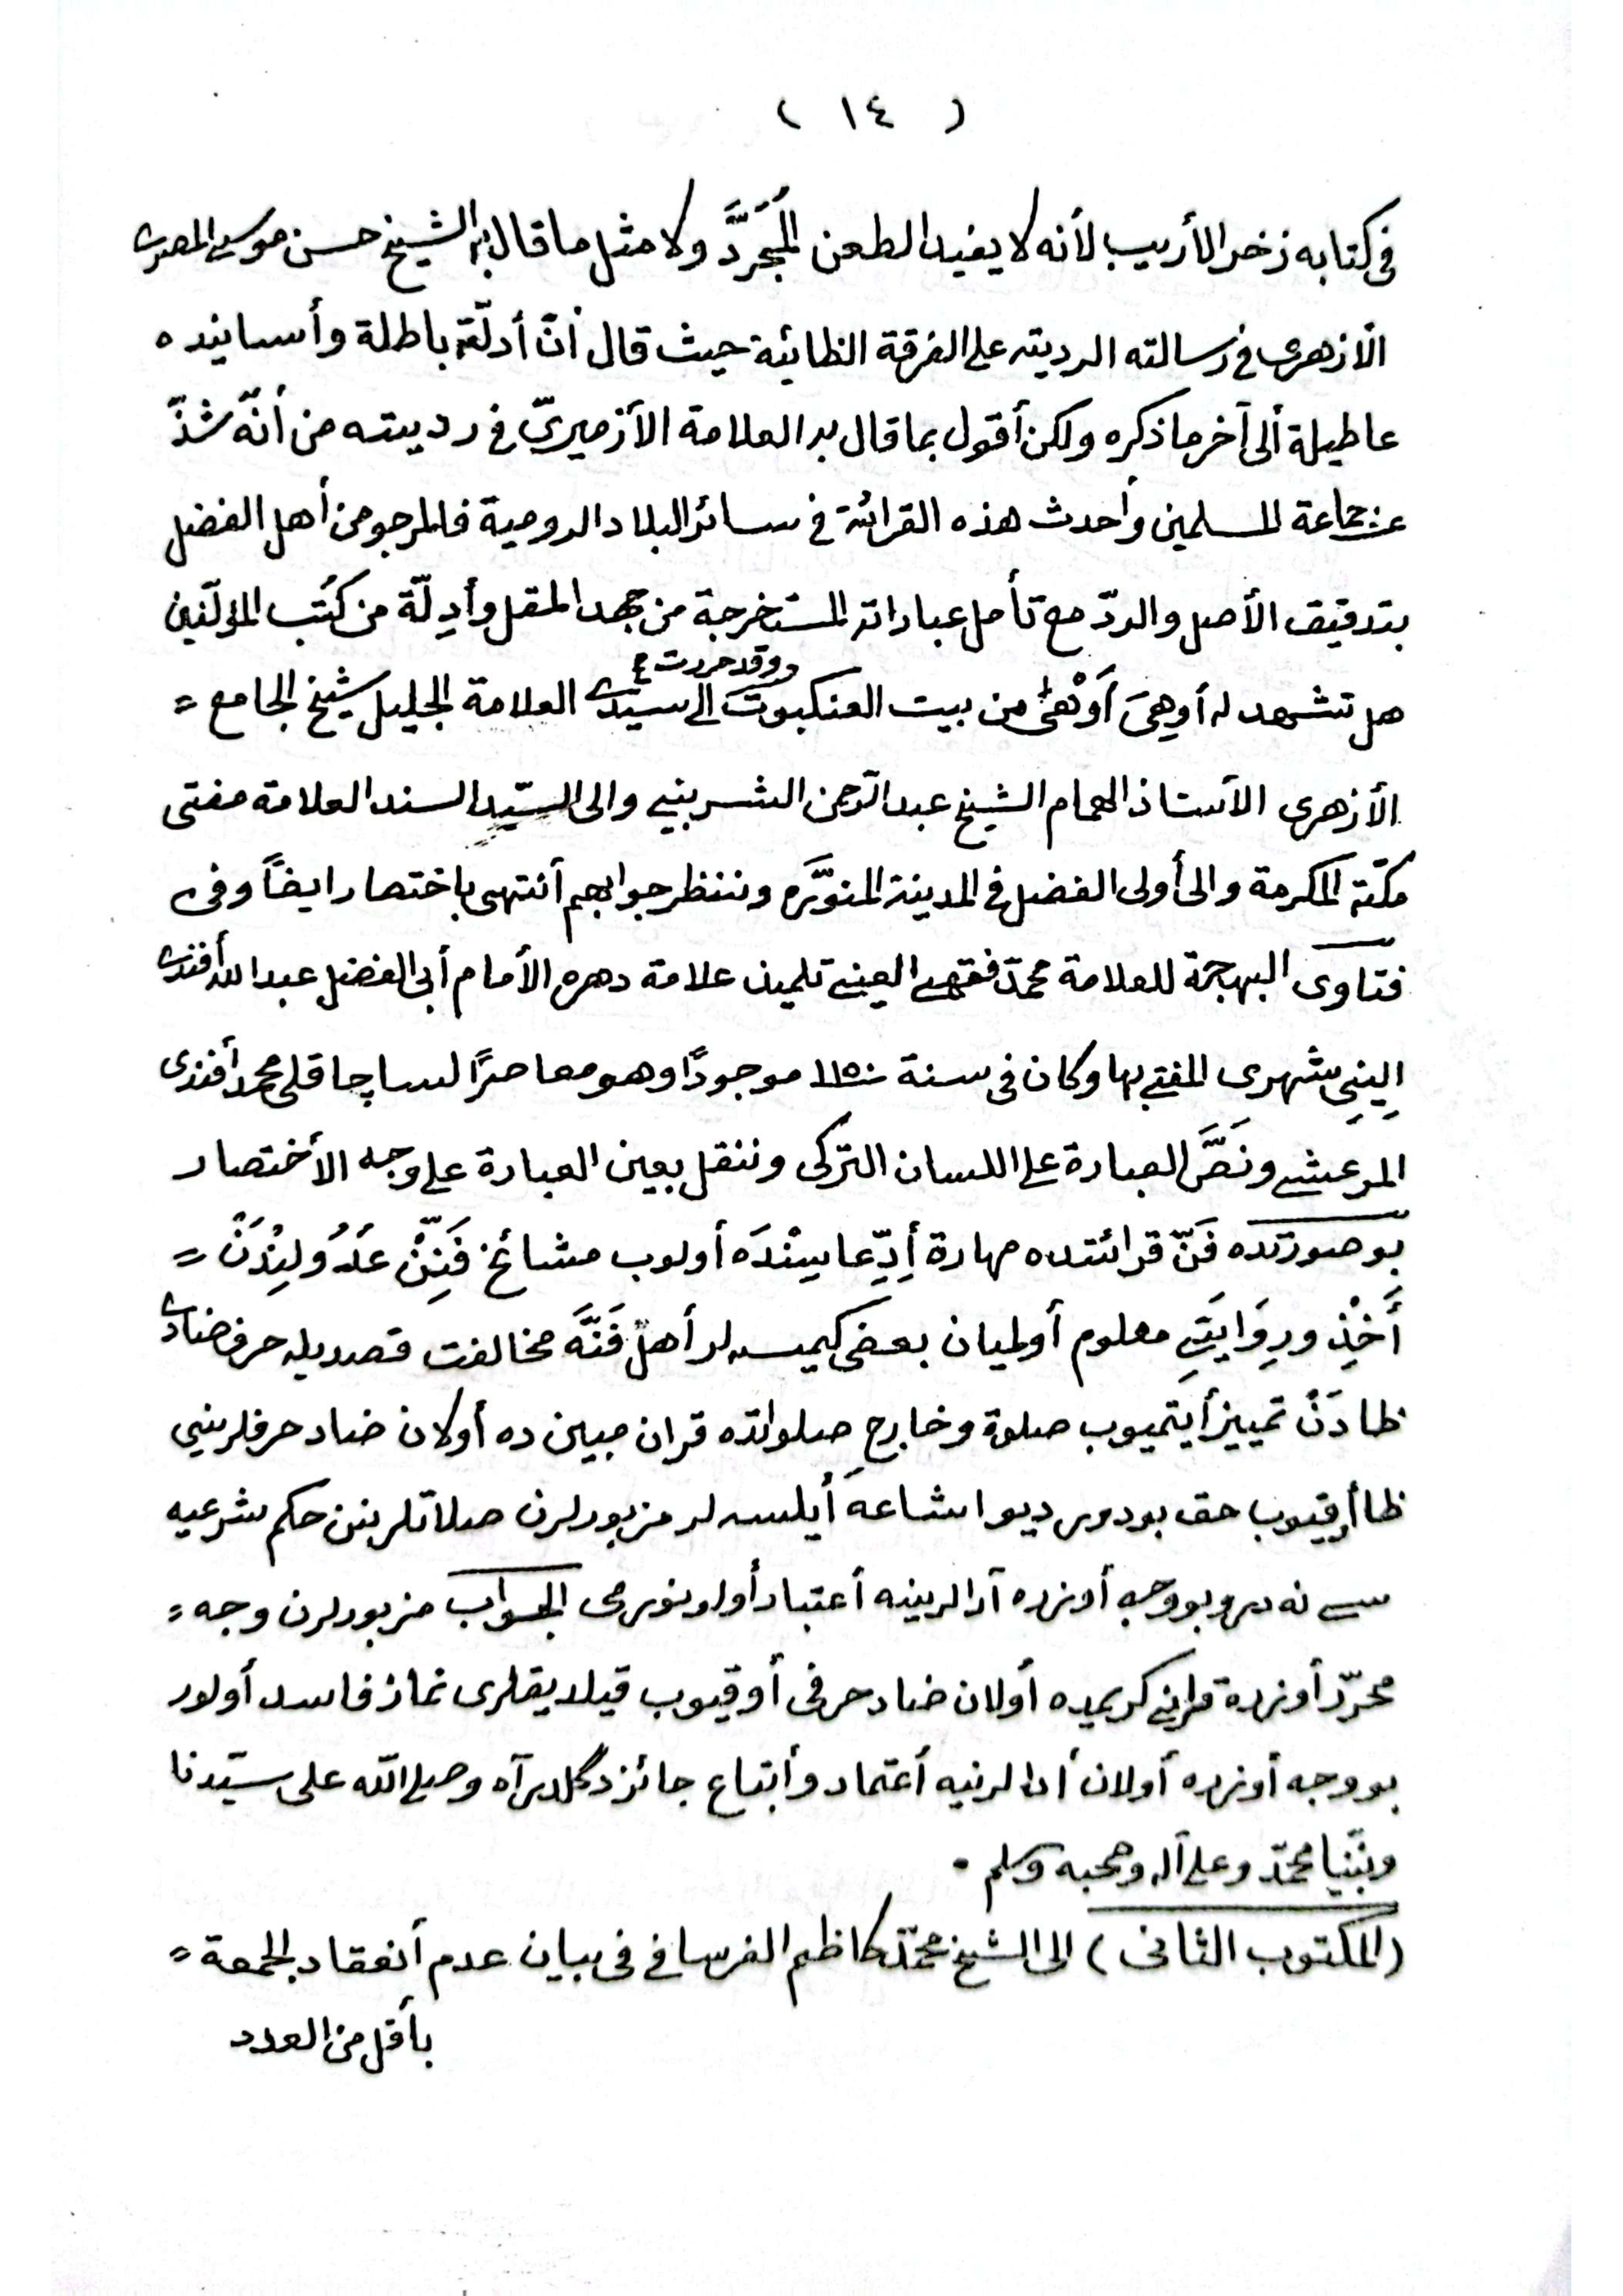 ( ١٤ )
فى كتابه ذخر الأريب لأنه لا يفيد الطعن المُجَرَّدَ ولا مثل ما قال به الشيخ حسن موسى المصرى
الأزهرى فى رسالته الرديته على الفرقة الظائية حيث قال أنّ أدلّته باطلة وأسانيده
عاطيلة ألى آخر ما ذكره ولكن أقول بما قال به العلامة الأزميرىّ فى رديته من أنّه شذّ
عن جماعة المسلمين وأحدث هذه القرائة فى سائر البلاد الرومية فالمرجو من أهل الفضل
بتدقيق الأصل والردّ مع تأمل عباراته المستخرجة من جهد المقل وأدِلّة من كتُب المؤلّفين
هل تشهد له أو هِىَ أَوْهَىٰ من بيت العنكبوت وقد حررت الى سيدى العلامة الجليل شيخ الجامع =
الأزهرى الأستاذ الهمام الشيخ عبد الرّحمن الشربينى والى السيّد السند العلامة مفتى
مكّة المكرمة والى أولى الفضل فى المدينة المنوَّره وننظر جوابهم أنتهى باختصار ايضاً وفى
فتاوى البهجة للعلامة محمّد فقهى العينى تلميذ علامة دهره الأمام أبى الفضل عبد الله أفندى
اليِنِى شهرى المفتى بها وكان فى سنة ١١٥٠ موجودًا وهو معاصرًا لساچاقلى محمد أفندى
المرعشى ونَصَّ العبارة على اللسان التركى وننقل بعين العبارة على وجه الأختصار
بو صورتده فَنّ قرائتده مهارة أدِّعاسِنْدَه أولوب مشائخ فَنِّنْ عَدُولِنْدَنْ =
أَخْذِ ورِوَايَتِى معلوم أولميان بعضى كيمسه لر أهل فَنَّه مخالفت قصديله حرف ضادى
ظادَنْ تمييز أيتميوب صلوة وخارجِ صلواتده قران مبين ده أولان ضاد حرفلرينى
ظا أوقيوب حق بودر ديو اشاعه أيلسه لر مزبورلرن صلاتلرينن حكم شرعيه
سى نه در وبو وجه أوزره أدالرينه أعتبار أولونورمى الجواب مزبورلرن وجه =
محرّر أوزره قران كريمده أولان ضاد حرفى أوقيوب قيلديقلرى نماز فاسد أولور
بو وجه أوزره أولان أدالرنيه أعتماد وأتباع جائز دگلدر آه وصلى الله على سيّدنا
ونبّينا محمّد وعلى آله وصحبه وسلم .
(المكتوب الثانى) الى الشيخ محمّد كاظم الفرسافى فى بيان عدم أنعقاد الجمعة =
بأقل من العدد